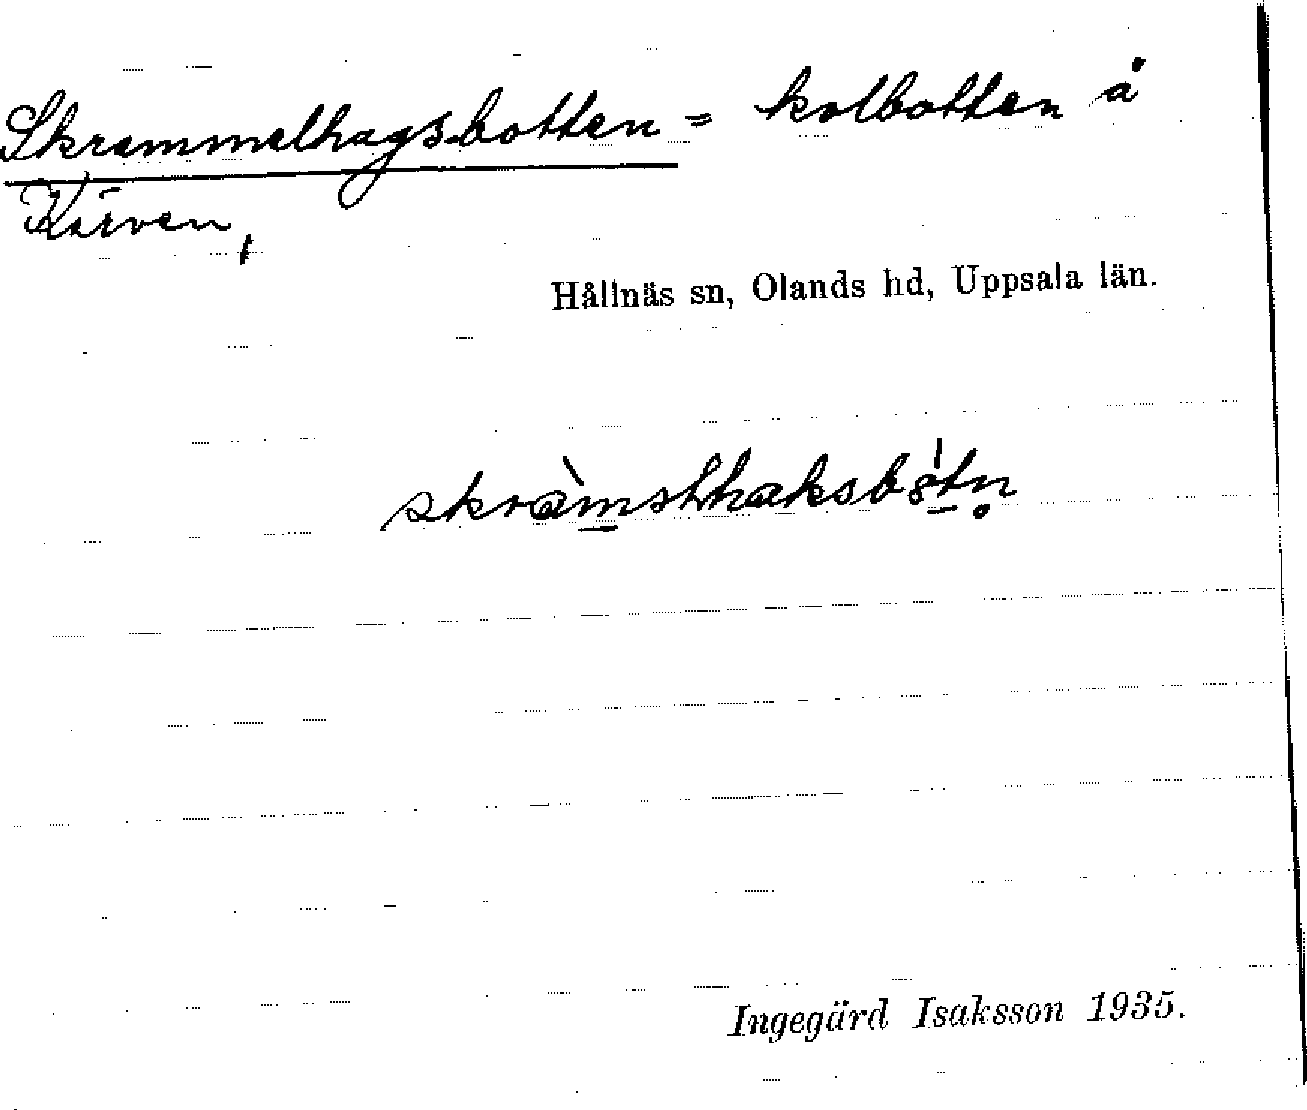 Skrammelhagsbotten = kolbotten å
Kärven,
Hållnäs sn, Olands hd, Uppsala län.
Ingegärd Isaksson 1935.